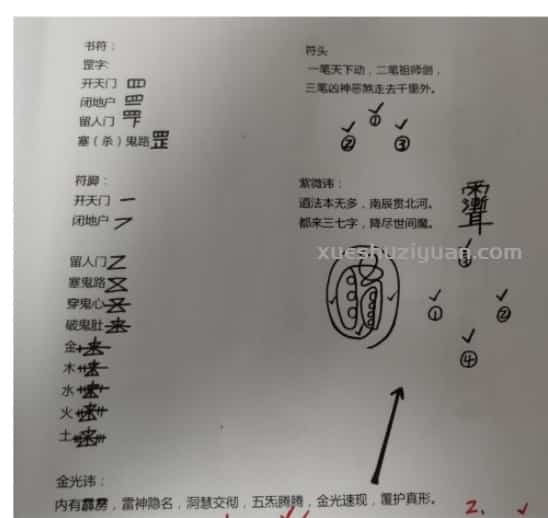 书符：
罡字：
开天门
闭地户
留人门
塞（杀）鬼路
符脚：
开天门
闭地户
留人门
塞鬼路
穿鬼心
破鬼肚
金
木
水
火
土
符头
一笔天下动，二笔祖师剑，
三笔凶神恶煞走去千里外。
①
② ③
紫微讳：
道法本无多，南辰贯北河。
都来三七字，降尽世间魔。
xueshuziyuan.com
③
① ②
④
金光讳：
内有霹雳，雷神隐名，洞慧交彻，五炁腾腾，金光速现，覆护真形。
2.